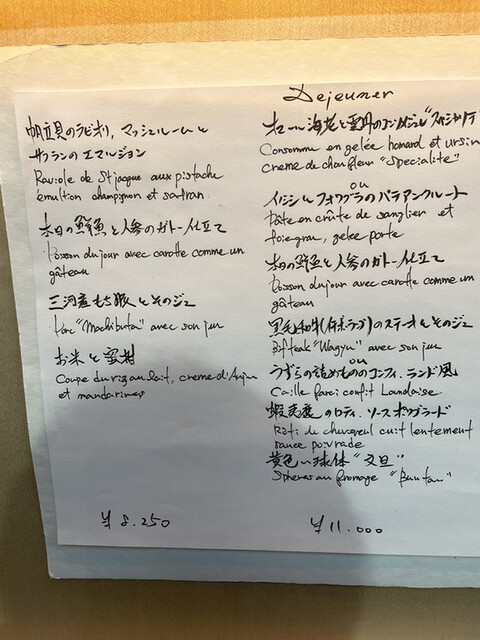 Dejeuner
帆立貝のラビオリ, マッシュルームと
サフランのエマルジョン
Raviole de St jaque aux pistache
émultion champignon et safran
本日の鮮魚と人参のガトー仕立て
Poisson du jour avec carotte comme un
gâteau
三河産もち豚とそのジュ
Porc "Mochibuta" avec son jus
お米と蜜柑
Coupe du riz au lait, creme d'Anjou
et mandarines
¥ 8.250
オマール海老と雲丹のコンソメジュレ "スペシャリテ
Consomme en gelée homard et ursin
creme de choufleur "Specialite"
ou
イノシシとフォワグラのパテアンクルート
Pâte en croûte de sanglier et
foie gras, gelee porto
本日の鮮魚と人参のガトー仕立て
Poisson du jour avec carotte comme un
gâteau
黒毛和牛のステーキとそのジュ
Bifteak "Wagyu" avec son jus
ou
うずらの詰めもののコンフィ, ランド風
Caille farci confit Landaise
蝦夷鹿のロティ, ソースポワヴラード
Rôti de chevreuil cuit lentement
sauce poivrade
黄色い球体 "文旦"
Spheres au fromage "Buntan"
¥ 11.000